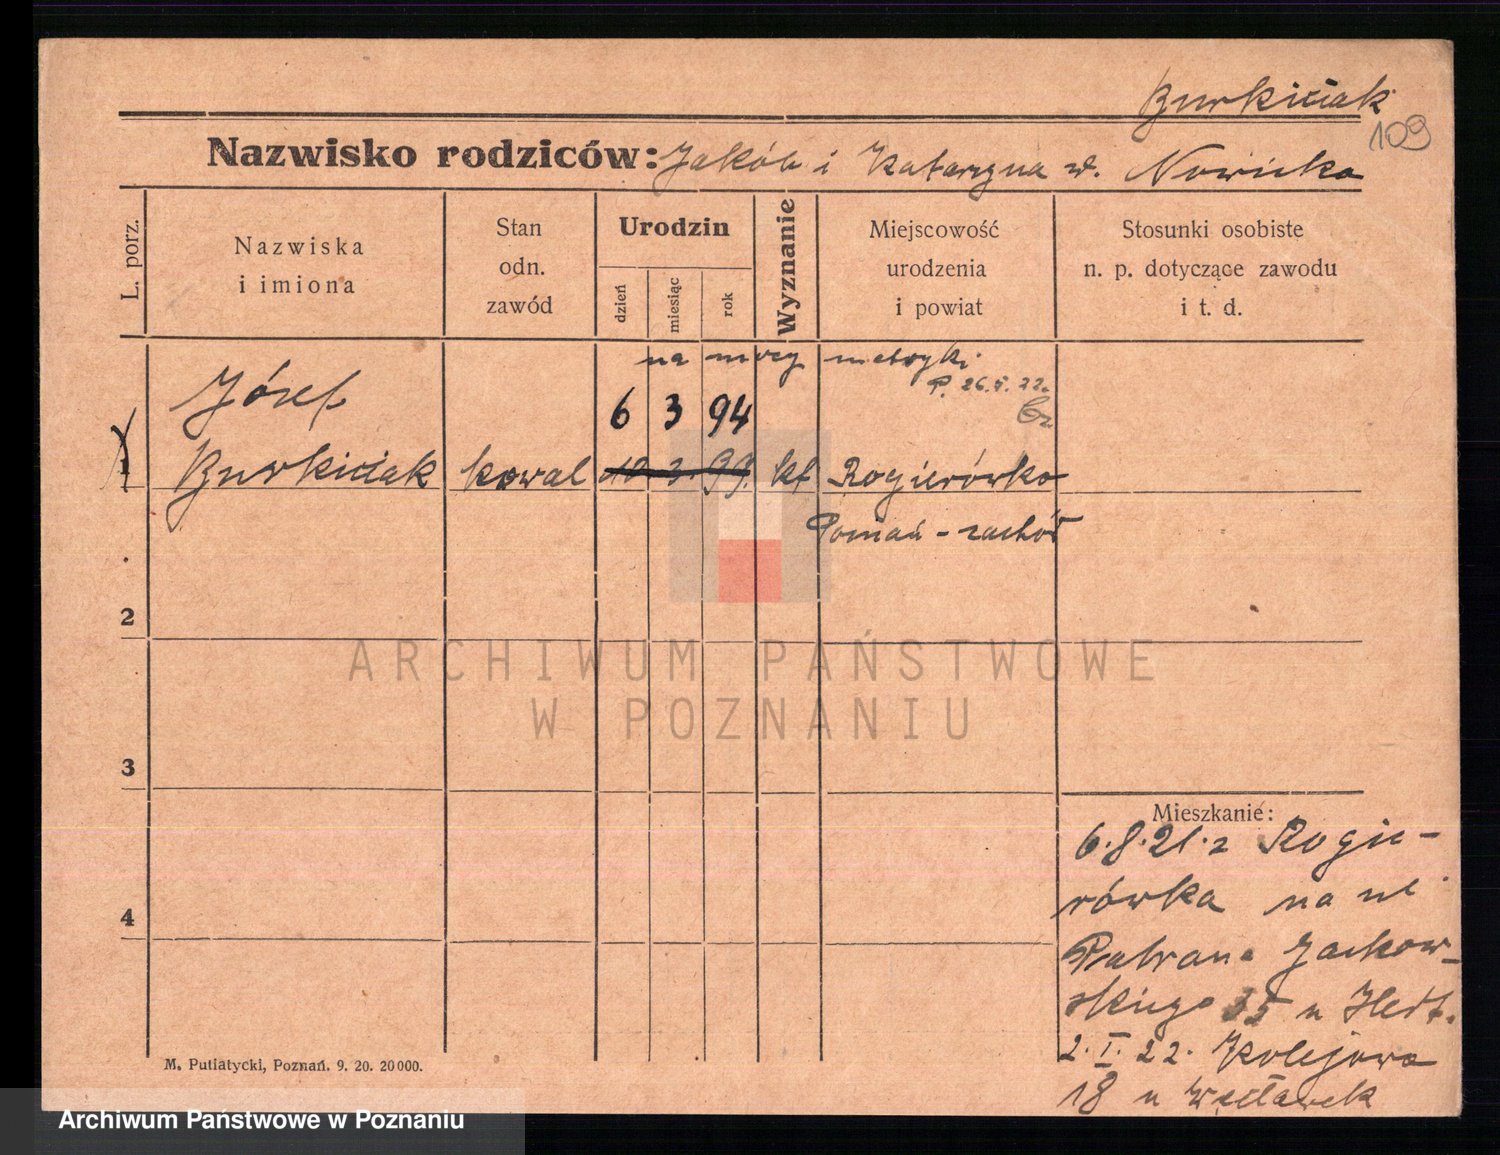 Burkiciak
109
Nazwisko rodziców: Jakób i Katarzyna z d. Nowicka
L. porz.
Nazwiska
i imiona
Stan
odn.
zawód
Urodzin
dzień
miesiąc
rok
Wyznanie
Miejscowość
urodzenia
i powiat
Stosunki osobiste
n. p. dotyczące zawodu
i t. d.
na mocy metryki
P. 26.5.22.
Józef
6 3 94
1 Burkiciak kowal 10 3. 99. kt Rogierówko
Poznań-zachód
2
3
4
ARCHIWUM PAŃSTWOWE
W POZNANIU
Mieszkanie:
6.8.21. z Rogie-
rówka na ul.
Patrona Jackow-
skiego 35 u
2.I.22. Kolejowa
18 u Węcławek
M. Putiatycki, Poznań. 9. 20. 20000.
Archiwum Państwowe w Poznaniu